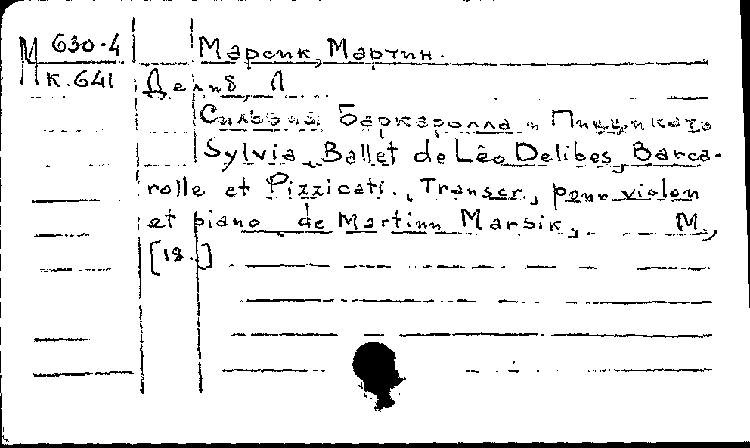 М 630-4 Марсик, Мартин.
к. 641 Делиб, Л
Сильвия Баркаролла и Пиццикато
Sylvia, Ballet de Lêo Delibes, Barca-
rolle et Pizzicati., Transcr., pour violon
et piano de Martinn Marsik,. M,
[18 .]